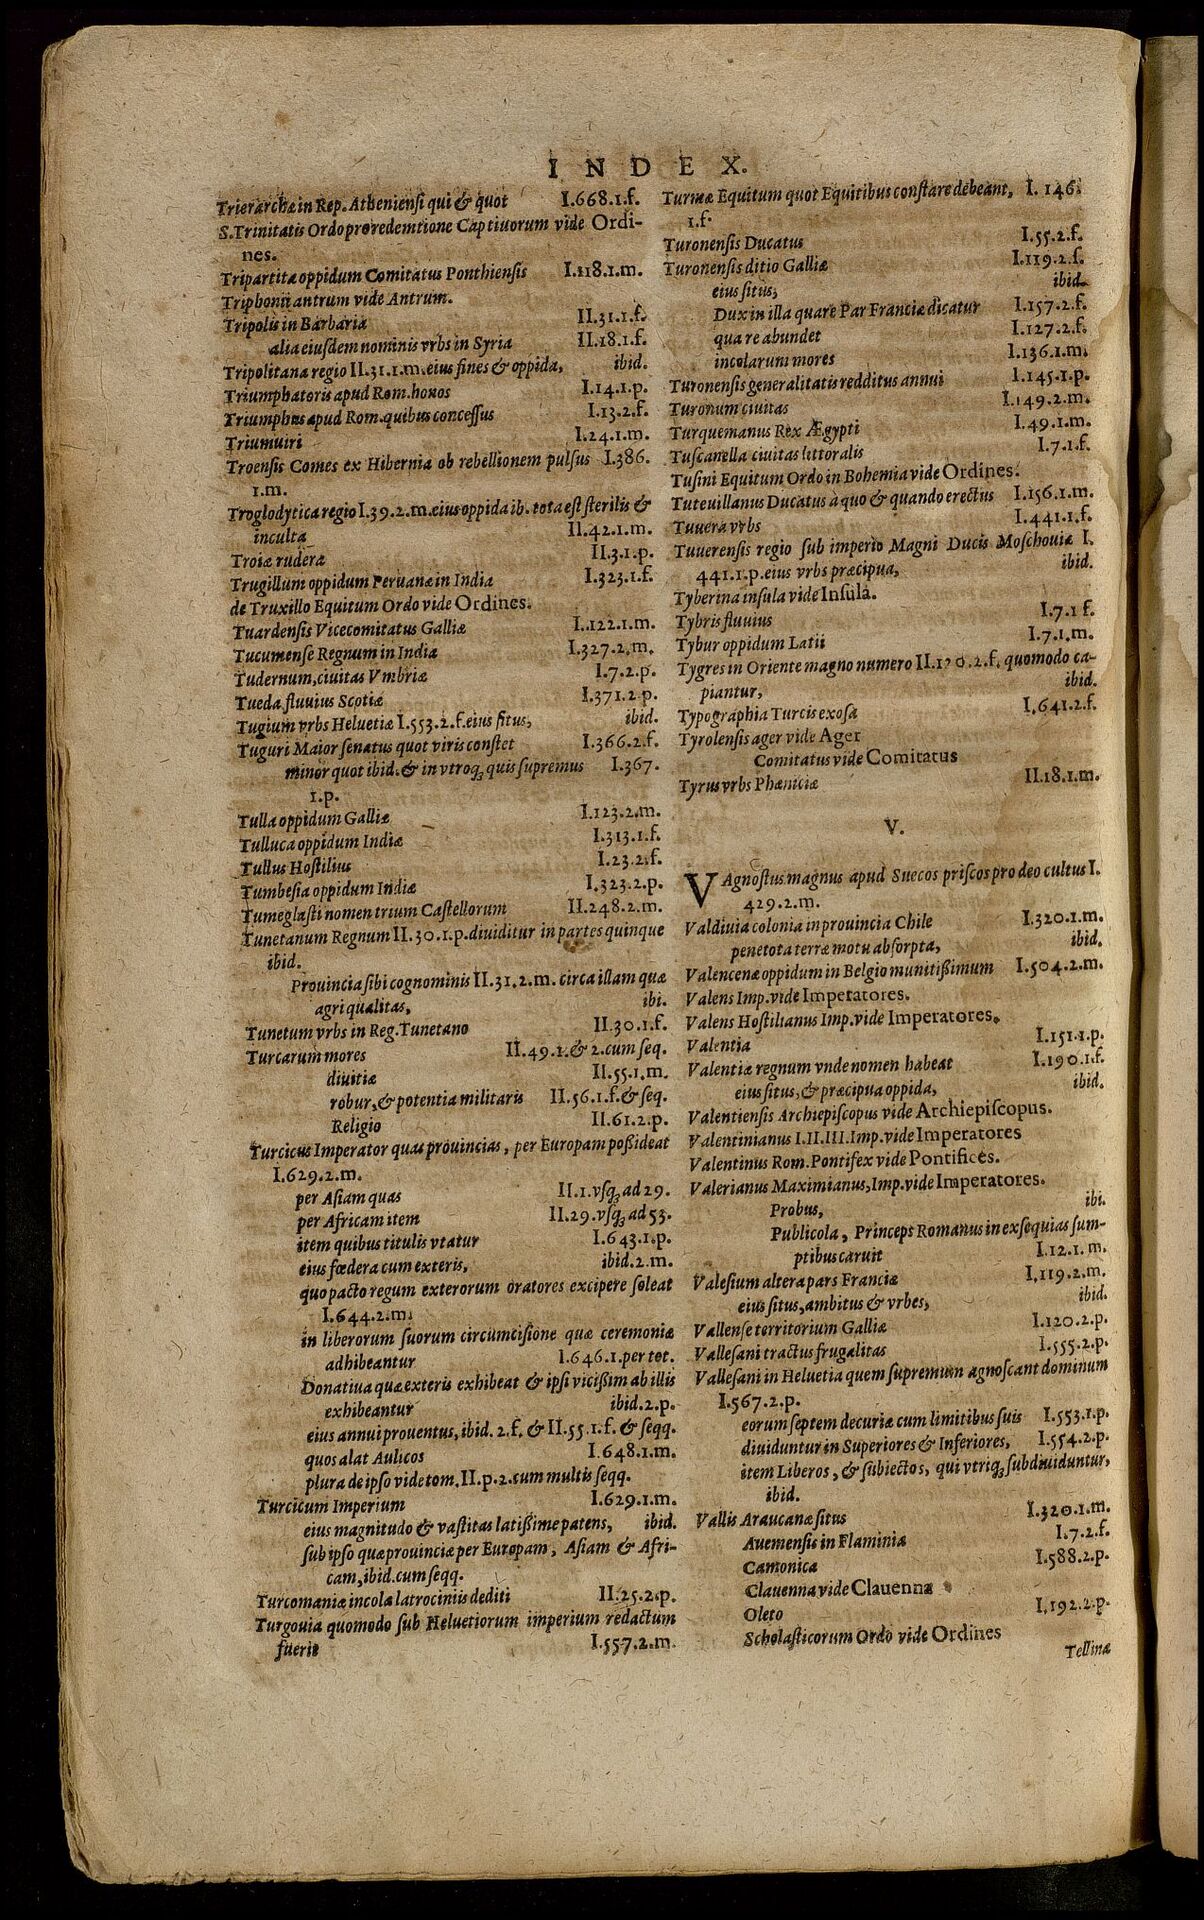 INDEX.
Trierarchæ in Rep. Atheniensi qui & quot I.668.1.f.
S. Trinitatis Ordo pro redemtione Captiuorum vide Ordi-
nes.
Tripartitæ oppidum Comitatus Ponthiensis I.118.1.m.
Triphonii antrum vide Antrum.
Tripolis in Barbaria II.31.1.f.
alia eiusdem nominis vrbs in Syria II.18.1.f.
Tripolitana regio II.31.1.m. eius fines & oppida, ibid.
Triumphatoris apud Rom. honos I.14.1.p.
Triumphus apud Rom. quibus concessus I.13.2.f.
Triumuiri I.24.1.m.
Troensis Comes ex Hibernia ob rebellionem pulsus I.386.
1.m.
Troglodytica regio I.39.2.m. eius oppida ib. tota est sterilis &
inculta II.42.1.m.
Troiæ rudera II.3.1.p.
Trugillum oppidum Peruanæ in India I.323.1.f.
de Truxillo Equitum Ordo vide Ordines.
Tuardensis Vicecomitatus Galliæ I.122.1.m.
Tucumense Regnum in India I.327.2.m.
Tudernum, ciuitas Vmbriæ I.7.2.p.
Tueda fluuius Scotiæ I.371.2 p.
Tugium vrbs Heluetiæ I.553.2.f. eius situs, ibid.
Tuguri Maior senatus quot viris constet I.366.2.f.
minor quot ibid. & in vtroq; quis supremus I.367.
1.p.
Tulla oppidum Galliæ I.123.2.m.
Tulluca oppidum Indiæ I.313.1.f.
Tullus Hostilius I.23.2.f.
Tumbesia oppidum Indiæ I.323.2.p.
Tumeglasti nomen trium Castellorum II.248.2.m.
Tunetanum Regnum II.30.1.p. diuiditur in partes quinque
ibid.
Prouincia sibi cognominis II.31.2.m. circa illam quæ
agri qualitas, ibi.
Tunetum vrbs in Reg. Tunetano II.30.1.f.
Turcarum mores II.49.1.& 2.cum seq.
diuitiæ II.55.1.m.
robur, & potentia militaris II.56.1.f.& seq.
Religio II.61.2.p.
Turcicus Imperator quas prouincias, per Europam poßideat
I.629.2.m.
per Asiam quas II.1.vsq; ad 29.
per Africam item II.29.vsq; ad 53.
item quibus titulis vtatur I.643.1.p.
eius fœdera cum exteris, ibid.2.m.
quo pacto regum exterorum oratores excipere soleat
I.644.2.m.
in liberorum suorum circumcisione quæ ceremoniæ
adhibeantur I.646.1.per tot.
Donatiua quæ exteris exhibeat & ipsi vicißim ab illis
exhibeantur ibid.2.p.
eius annui prouentus, ibid. 2.f. & II.55.1.f. & seqq.
quos alat Aulicos I.648.1.m.
plura de ipso vide tom. II.p.2.cum multis seqq.
Turcicum Imperium I.629.1.m.
eius magnitudo & vastitas latißime patens, ibid.
sub ipso quæ prouinciæ per Europam, Asiam & Afri-
cam, ibid. cum seqq.
Turcomaniæ incolæ latrociniis dediti II.25.2.p.
Turgouia quomodo sub Heluetiorum imperium redactum
fuerit I.557.2.m.
Turmæ Equitum quot Equitibus constare debeant, I. 146.
1.f.
Turonensis Ducatus I.55.2.f.
Turonensis ditio Galliæ I.119.2.f.
eius situs, ibid.
Dux in illa quare Par Franciæ dicatur I.157.2.f.
qua re abundet I.127.2.f.
incolarum mores I.136.1.m.
Turonensis generalitatis redditus annui I.145.1.p.
Turonum ciuitas I.149.2.m.
Turquemanus Rex Ægypti I.49.1.m.
Tuscanella ciuitas littoralis I.7.1.f.
Tusini Equitum Ordo in Bohemia vide Ordines.
Tuteuillanus Ducatus à quo & quando erectus I.156.1.m.
Tuuera vrbs I.441.1.f.
Tuuerensis regio sub imperio Magni Ducis Moschouiæ I.
441.1.p. eius vrbs præcipua, ibid.
Tyberina insula vide Insula.
Tybris fluuius I.7.1 f.
Tybur oppidum Latii I.7.1.m.
Tygres in Oriente magno numero II.170.2.f. quomodo ca-
piantur, ibid.
Typographia Turcis exosa I.641.2.f.
Tyrolensis ager vide Ager
Comitatus vide Comitatus
Tyrus vrbs Phæniciæ II.18.1.m.
V.
VAgnostus magnus apud Suecos priscos pro deo cultus I.
429.2.m.
Valdiuia colonia in prouincia Chile I.320.1.m.
pene tota terræ motu absorpta, ibid.
Valencenæ oppidum in Belgio munitißimum I.504.2.m.
Valens Imp. vide Imperatores.
Valens Hostilianus Imp. vide Imperatores.
Valentia I.151.1.p.
Valentiæ regnum vnde nomen habeat I.190.1.f.
eius situs, & præcipua oppida, ibid.
Valentiensis Archiepiscopus vide Archiepiscopus.
Valentinianus I.II.III. Imp. vide Imperatores
Valentinus Rom. Pontifex vide Pontifices.
Valerianus Maximianus, Imp. vide Imperatores.
Probus, ibi.
Publicola, Princeps Romanus in exsequias sum-
ptibus caruit I.12.1.m.
Valesium altera pars Franciæ I.119.2.m.
eius situs, ambitus & vrbes, ibid.
Vallense territorium Galliæ I.120.2.p.
Vallesani tractus frugalitas I.555.2.p.
Vallesani in Heluetia quem supremum agnoscant dominum
I.567.2.p.
eorum septem decuriæ cum limitibus suis I.553.1.p.
diuiduntur in Superiores & Inferiores, I.554.2.p.
item Liberos, & subiectos, qui vtriq; subdiuiduntur,
ibid.
Vallis Araucanæ situs I.320.1.m.
Auemensis in Flaminia I.7.2.f.
Camonica I.588.2.p.
Clauenna vide Clauenna
Oleto I.192.2.p.
Scholasticorum Ordo vide Ordines
Tellinæ